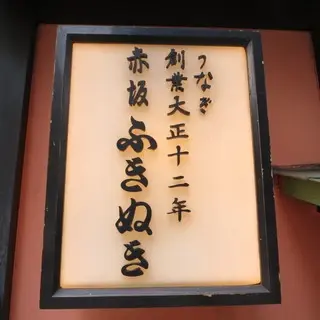 うなぎ
創業大正十二年
赤坂 ふきぬき